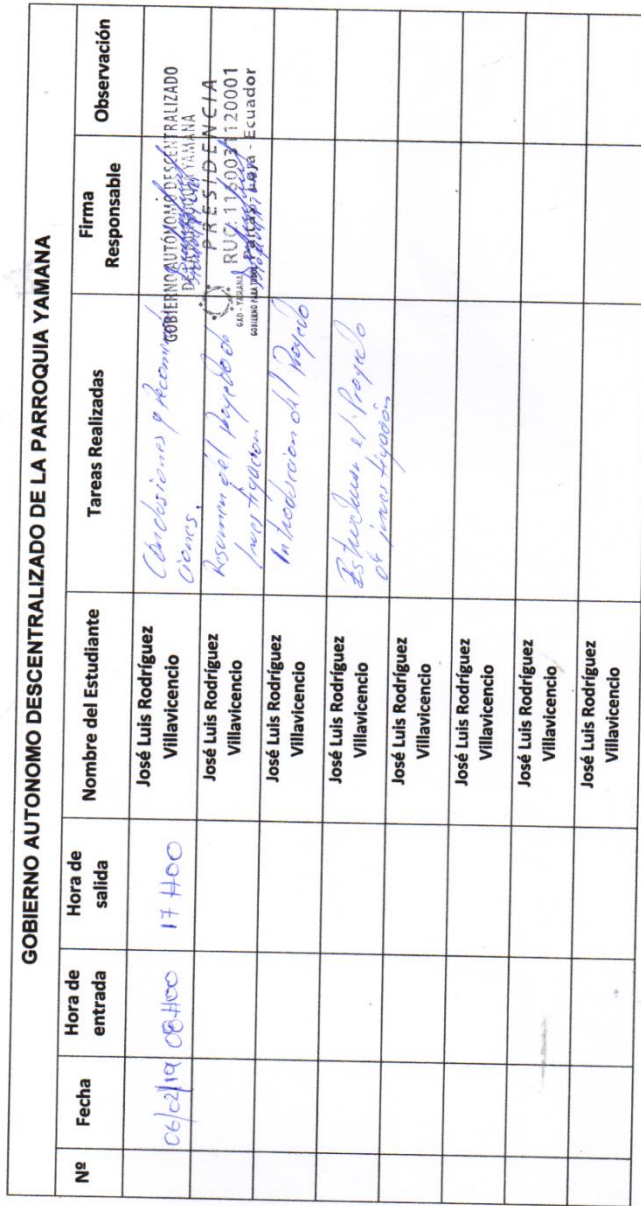 GOBIERNO AUTONOMO DESCENTRALIZADO DE LA PARROQUIA YAMANA
Nº
Fecha
Hora de
entrada
Hora de
salida
Nombre del Estudiante
Tareas Realizadas
Firma
Responsable
Observación
06/02/19
08H00
17H00
José Luis Rodríguez
Villavicencio
Conclusiones y Recomenda
ciones.
GOBIERNO AUTÓNOMO DESCENTRALIZADO
YAMANA
PRESIDENCIA
RUC: 1160031120001
Paltas - Loja - Ecuador
GAD - YAMANA
José Luis Rodríguez
Villavicencio
Resumen del Proyecto de
Investigación
José Luis Rodríguez
Villavicencio
Introduccion del Proyecto
José Luis Rodríguez
Villavicencio
Estructurar el Proyecto
de investigación
José Luis Rodríguez
Villavicencio
José Luis Rodríguez
Villavicencio
José Luis Rodríguez
Villavicencio
José Luis Rodríguez
Villavicencio